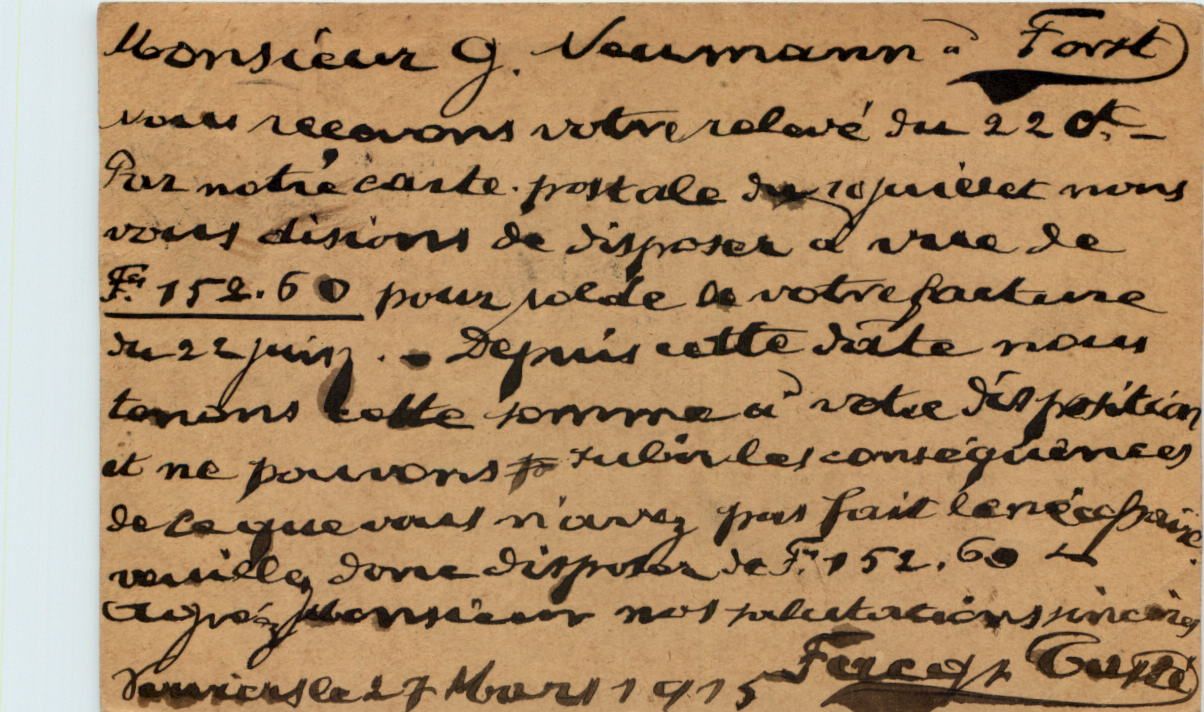 Monsieur G. Neumann à Forst
Nous recevons votre relevé du 22 ct. –
Par notre carte postale du 10 juillet nous
vous disions de disposer à vue de
Fs. 152.60 pour solde de votre facture
du 22 juin. – Depuis cette date nous
tenons cette somme à votre disposition
et ne pouvons subir les conséquences
de ce que vous n'avez pas fait le nécessaire.
veuillez donc disposer de Fs. 152.60
Agréez Monsieur nos salutations sincères
Verviers le 27 Mars 1915